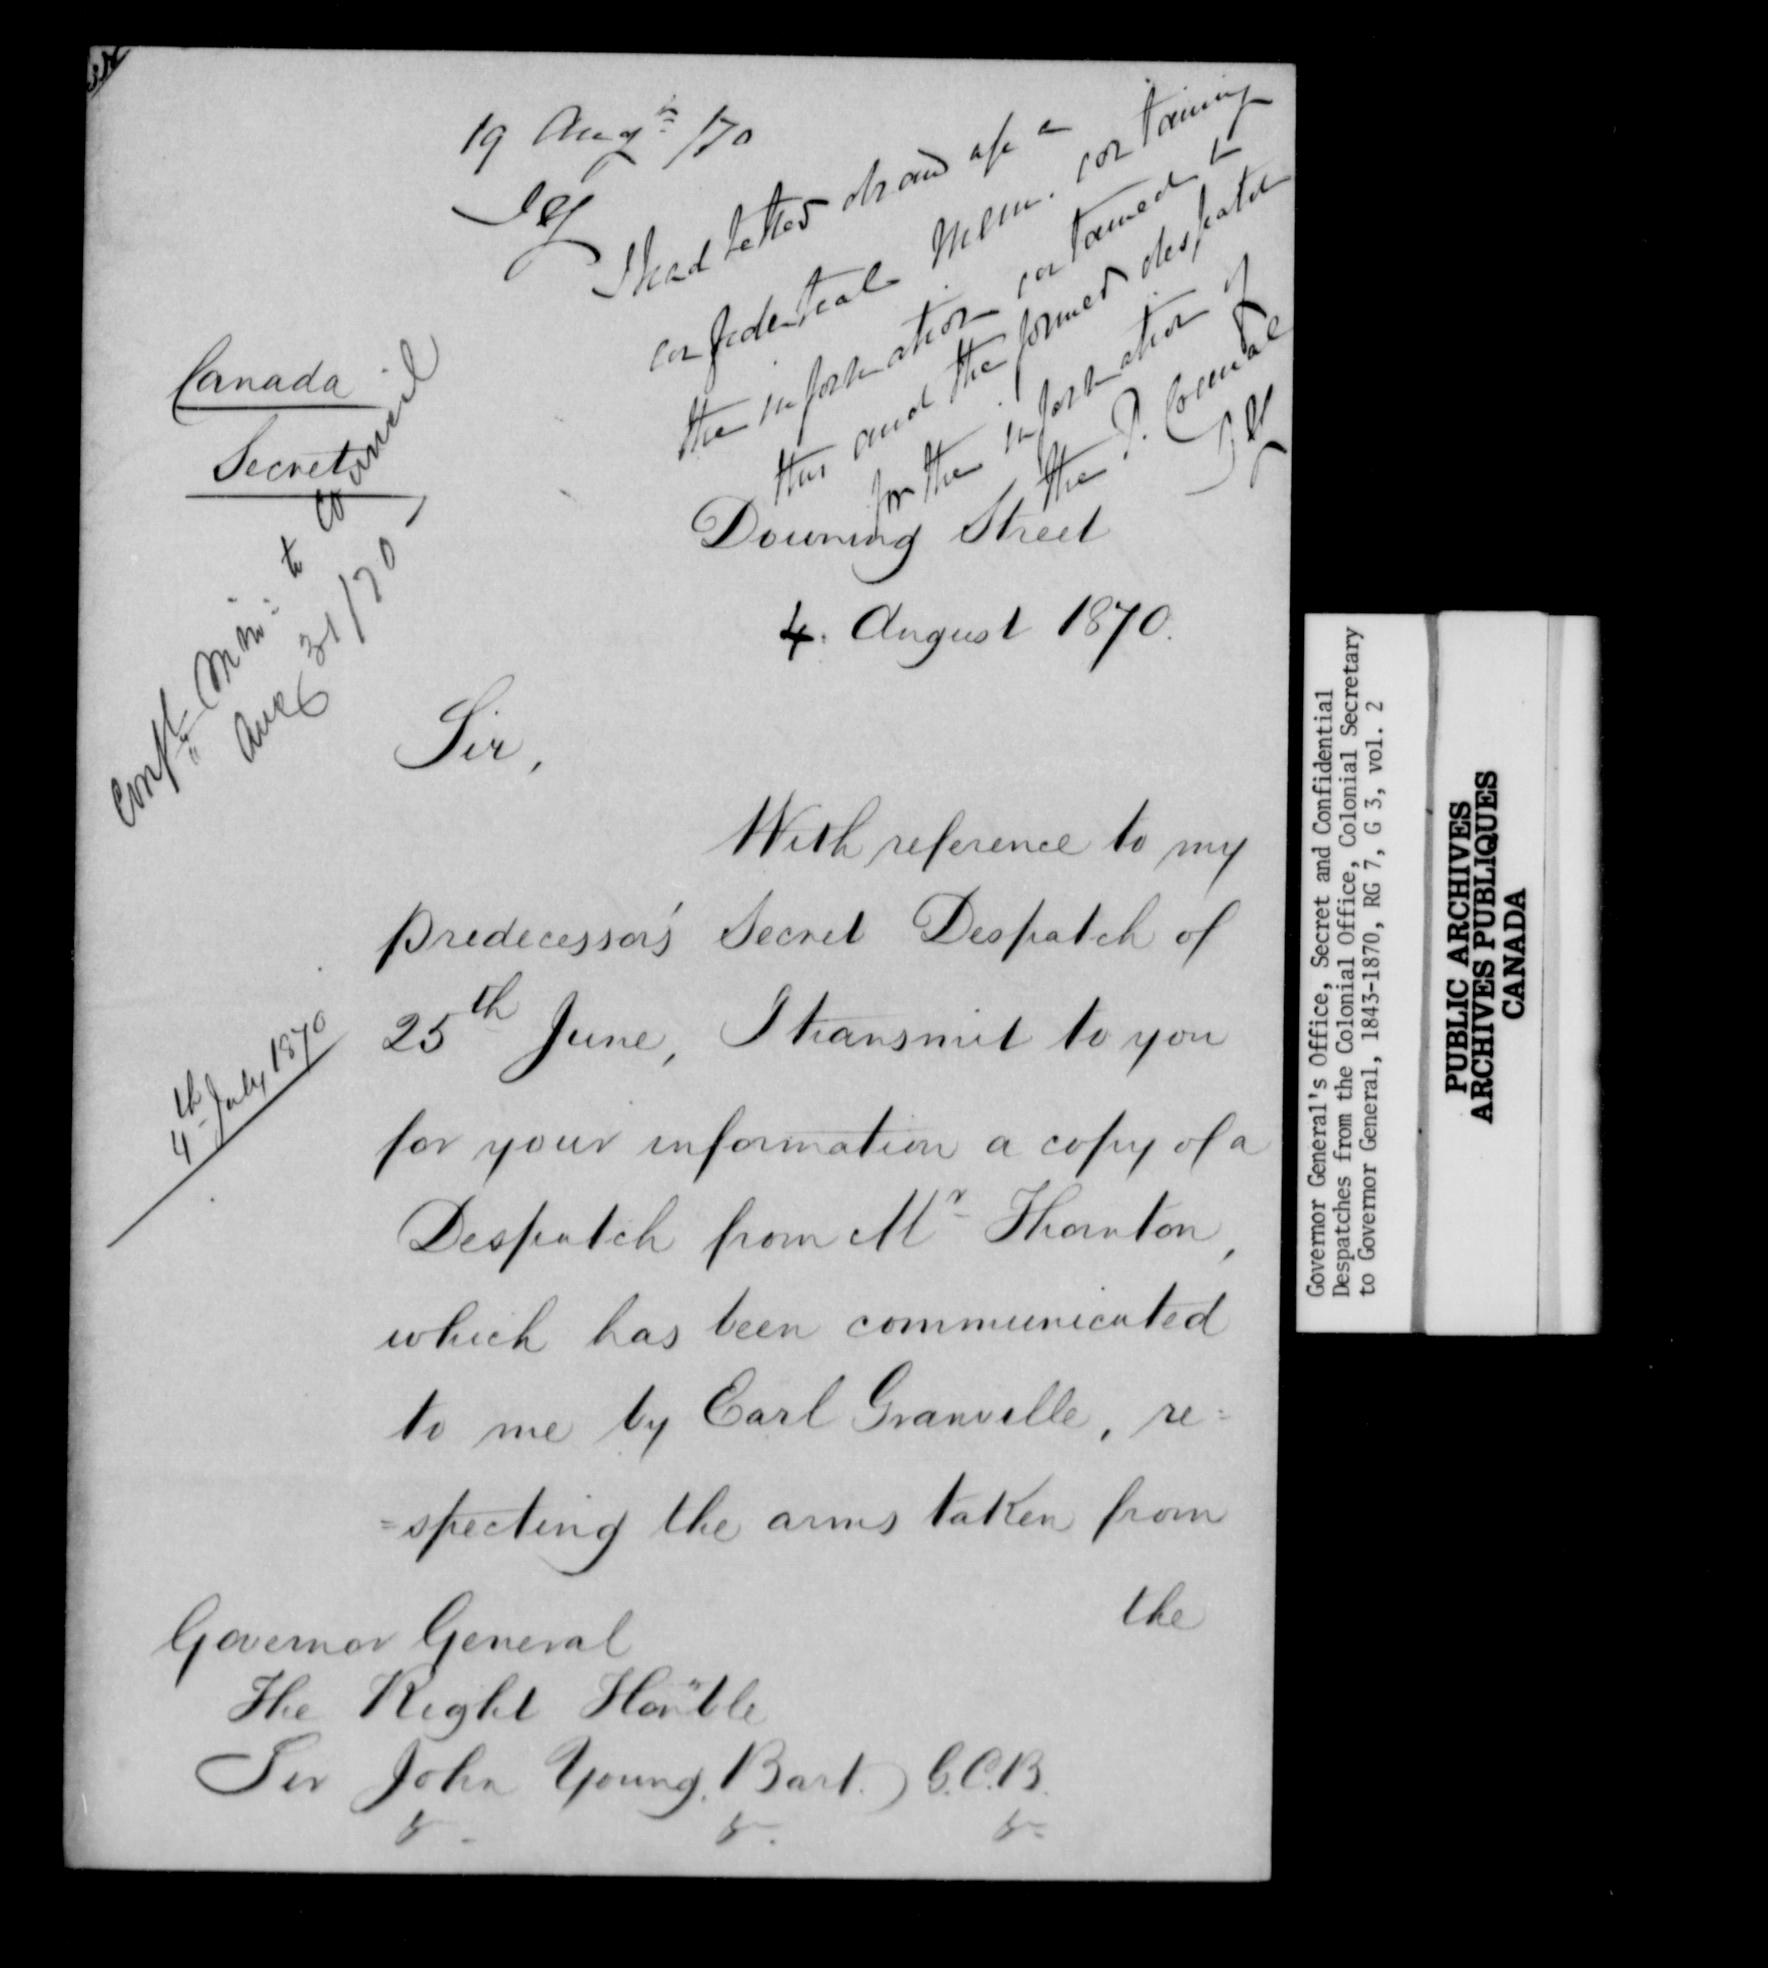 19 Augt /70
JY
I had better draw up a
confidential Mem. containing
the information contained in
this and the former despatch
for the information of
the P. Council
JY
Canada
Secret
Confl Min: to Council
Aug 31/70
Downing Street
4. August 1870.
Sir,
With reference to my
predecessor's Secret Despatch of
25th June, I transmit to you
4th July 1870
for your information a copy of a
Despatch from Mr Thornton,
which has been communicated
to me by Earl Granville, re=
=specting the arms taken from
the
Governor General
The Right Honble
Sir John Young, Bart. G.C.B.
&. &. &.
Governor General's Office, Secret and Confidential
Despatches from the Colonial Office, Colonial Secretary
to Governor General, 1843-1870, RG 7, G 3, vol. 2
PUBLIC ARCHIVES
ARCHIVES PUBLIQUES
CANADA